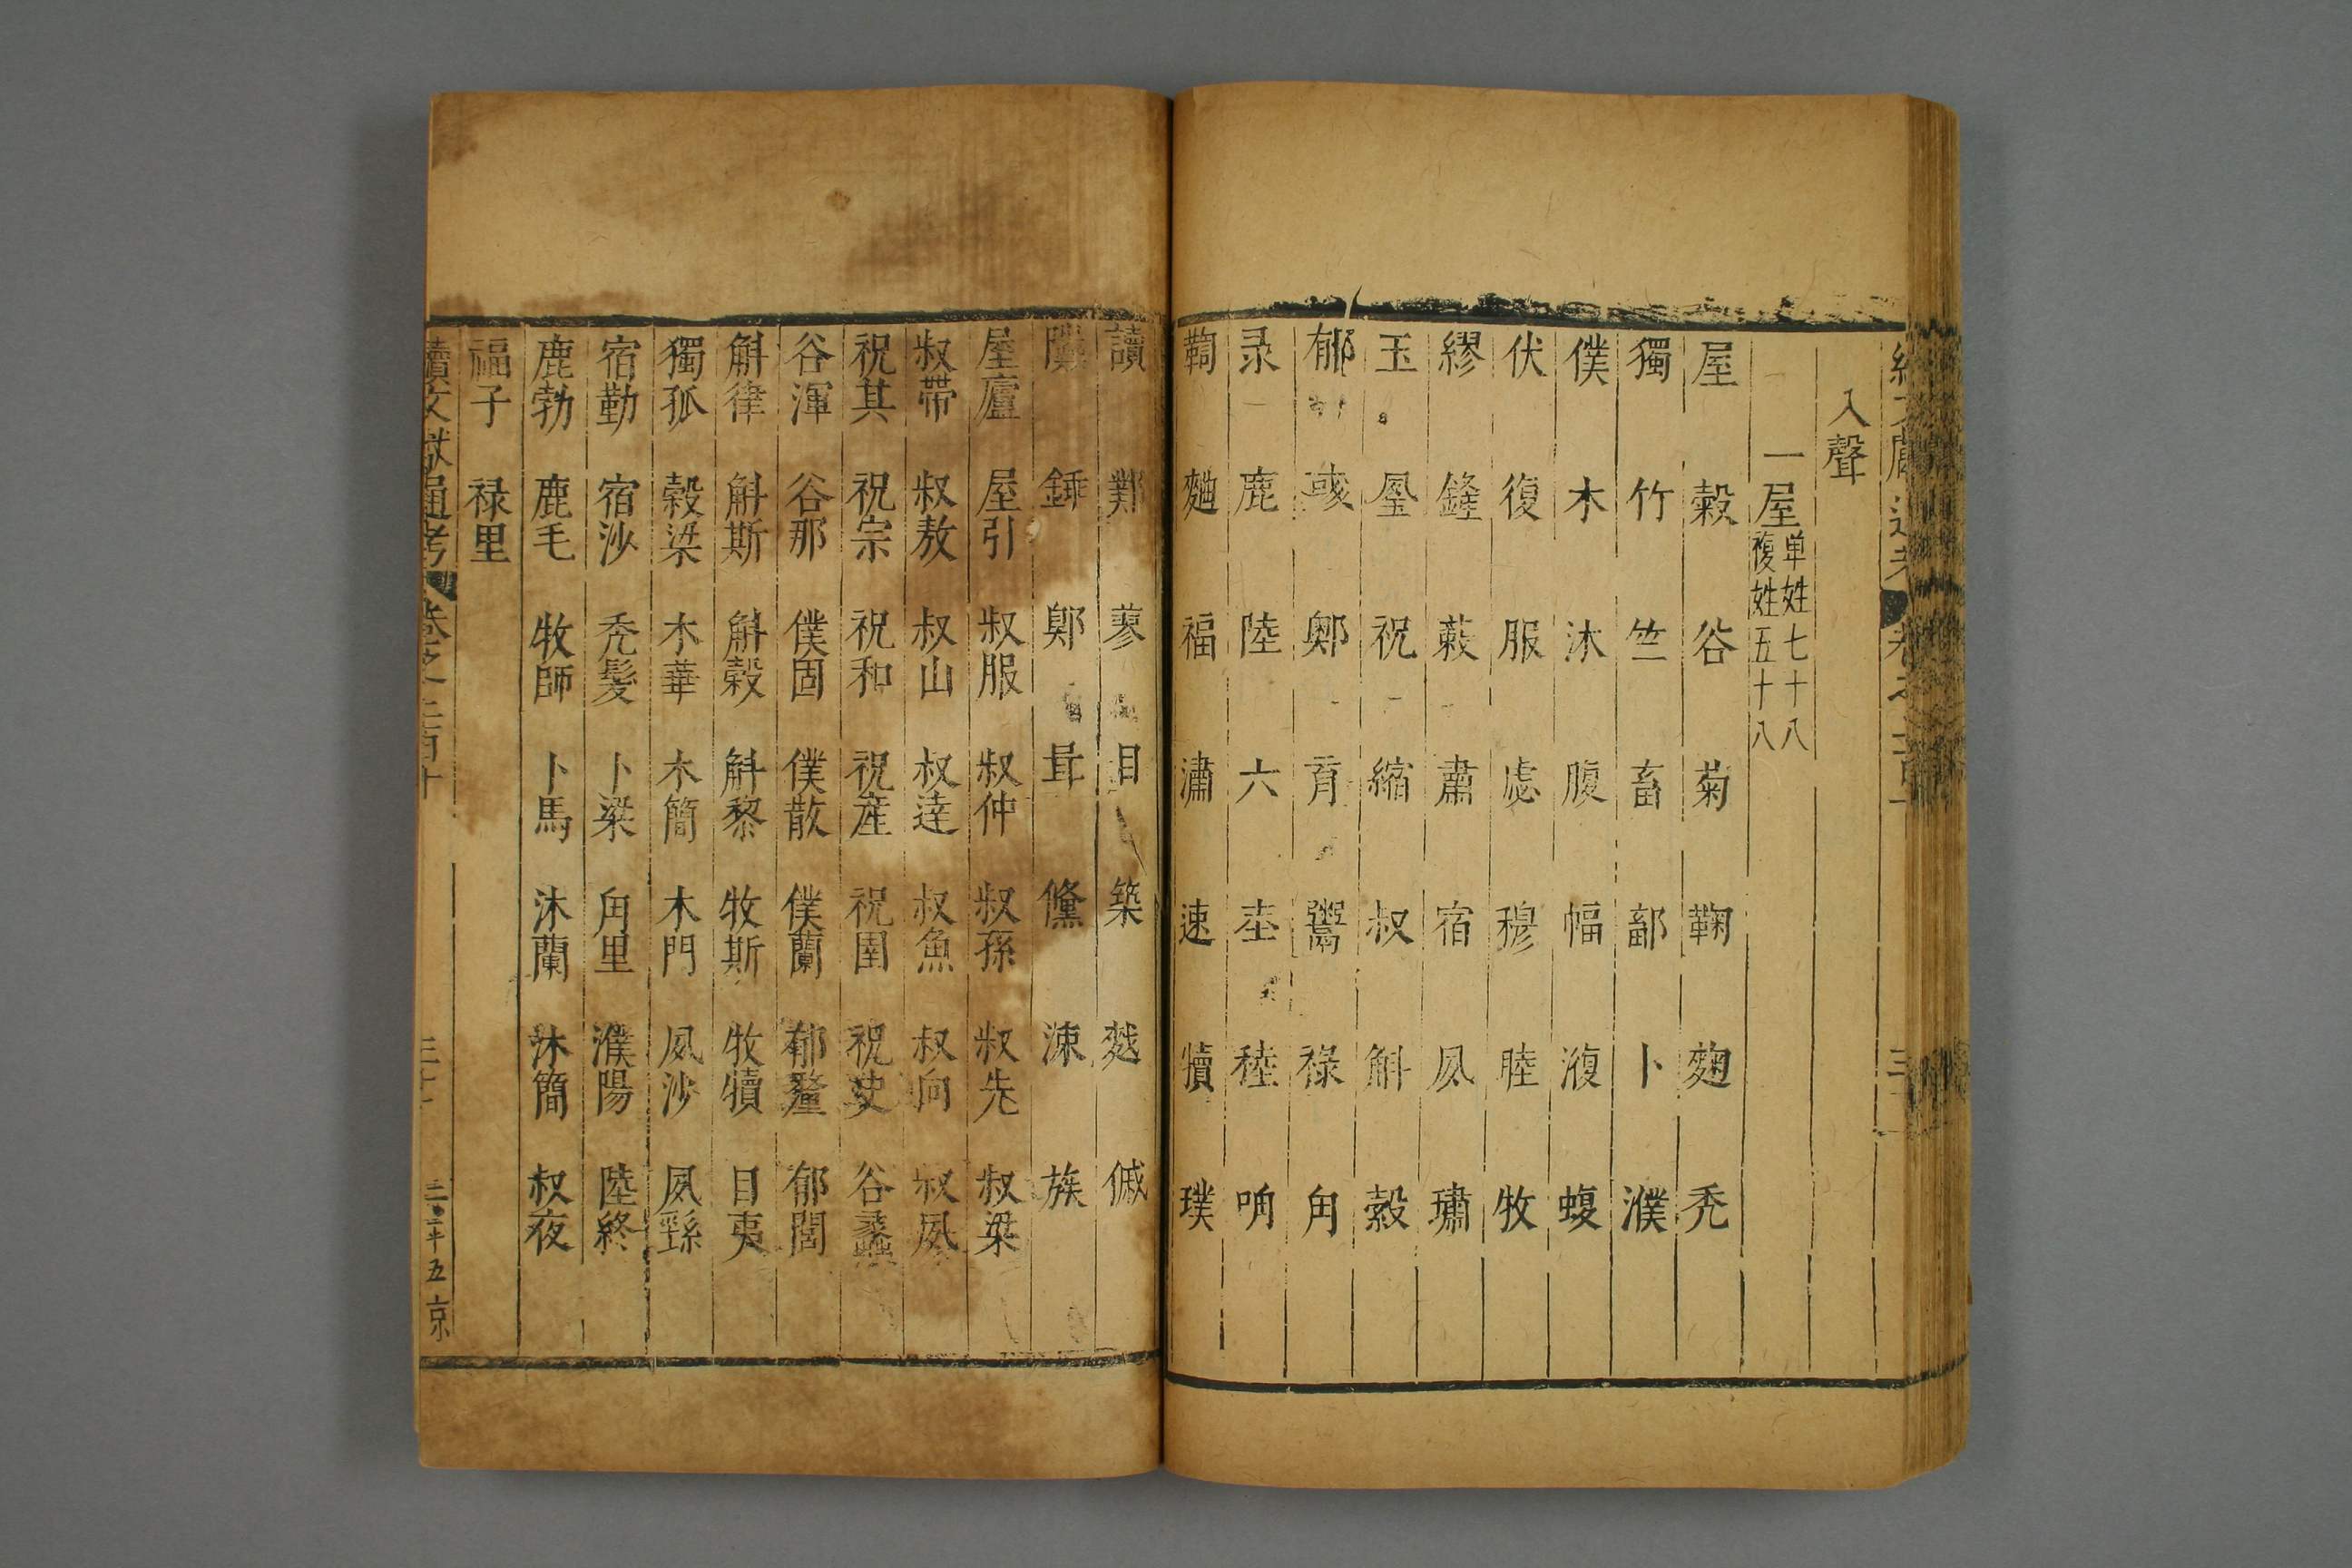 入聲
一屋 单姓七十八 複姓五十八
屋 穀 谷 菊 鞠 麹 秃
獨 竹 竺 畜 鄐 卜 濮
僕 木 沐 腹 幅 澓 蝮
伏 復 服 虙 穆 睦 牧
繆 鏠 蔌 肅 宿 夙 璛
玉 祝 縮 叔 斛 縠
郁 彧 鄭 育 鬻 禄 角
录 鹿 陸 六 坴 稑
鞫 麯 福 潚 速 犢 璞
讀 鄴 蓼 目 築 俶
鄭 族 涑
屋廬 屋引 叔服 叔仲 叔孫 叔先 叔梁
叔帶 叔敖 叔山 叔達 叔魚 叔向 叔夙
祝其 祝宗 祝和 祝産 祝圉 祝史 谷蠡
谷渾 谷那 僕固 僕散 僕蘭 郁釐 郁閭
斛律 斛斯 斛穀 斛黎 牧斯 牧犢 目夷
獨孤 穀梁 木華 木簡 木門 夙沙 夙繇
宿勤 宿沙 秃髮 卜梁 角里 濮陽 陸終
鹿勃 鹿毛 牧師 卜馬 沐蘭 沐簡 叔夜
福子 禄里
續文獻通考 卷之二百十